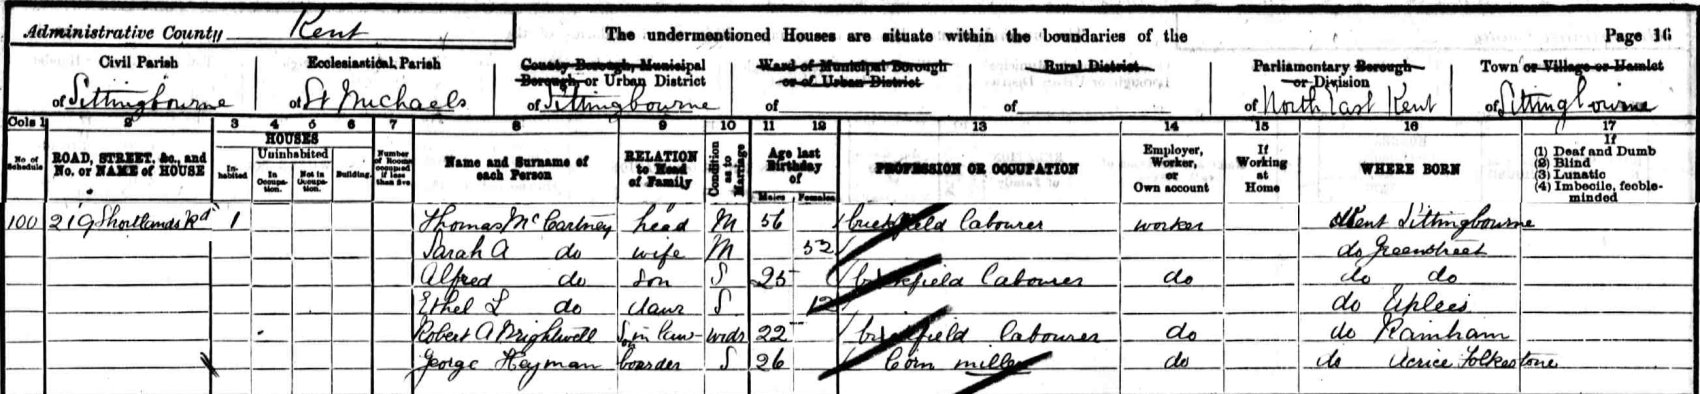 Administrative County Kent The undermentioned Houses are situate within the boundaries of the Page 16
Civil Parish Ecclesiastical Parish County Borough, Municipal Borough, or Urban District Ward of Municipal Borough or of Urban District Rural District Parliamentary Borough or Division Town or Village or Hamlet
of Sittingbourne of St Michaels of Sittingbourne of of of North East Kent of Sittingbourne
Cols 1 2 3 4 5 6 7 8 9 10 11 12 13 14 15 16 17
No. of Schedule ROAD, STREET, &c., and No. or NAME of HOUSE HOUSES Inhabited Uninhabited In Occupation. Not in Occupation. Building. Number of Rooms occupied if less than five Name and Surname of each Person RELATION to Head of Family Condition as to Marriage Age last Birthday of Males Females PROFESSION OR OCCUPATION Employer, Worker, or Own account If Working at Home WHERE BORN If (1) Deaf and Dumb (2) Blind (3) Lunatic (4) Imbecile, feeble-minded
100 219 Shortlands Rd 1 Thomas McCartney head M 56 brickfield labourer worker Kent Sittingbourne
Sarah A do wife M 52 do Greenstreet
Alfred do son S 25 brickfield labourer do do do
Ethel L do daur S 12 do Uplees
Robert A Brightwell Son in law widr 22 brickfield labourer do do Rainham
George Hayman boarder S 26 Corn miller do do Acrice Folkestone